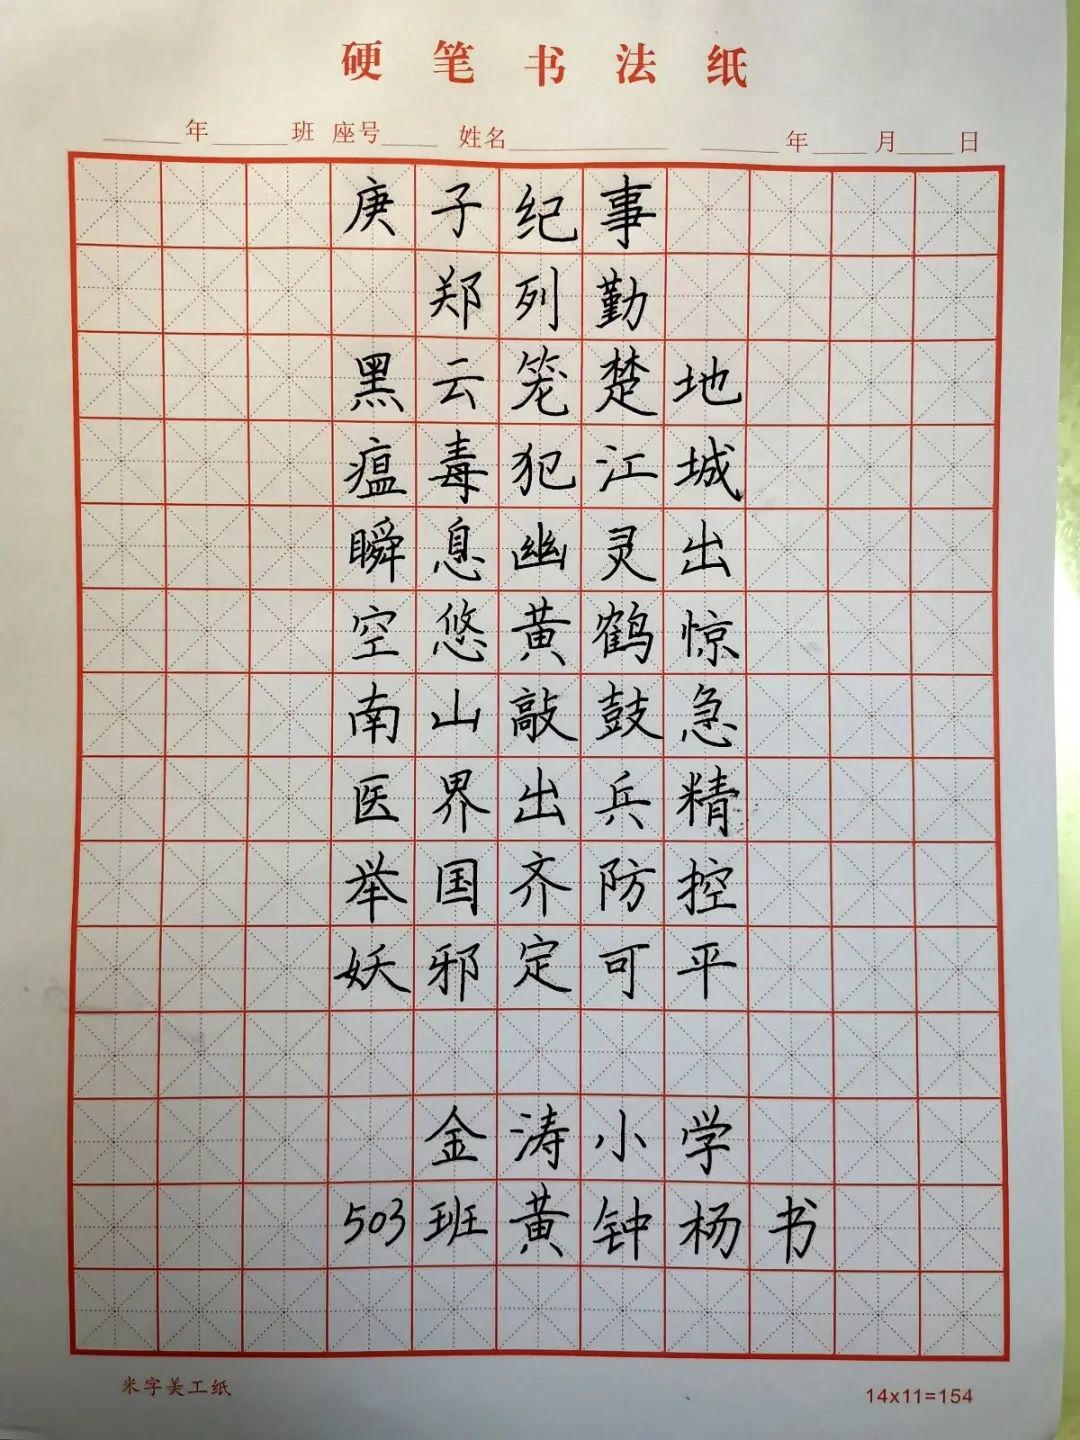 硬笔书法纸
年 班 座号 姓名 年 月 日
庚子纪事
郑列勤
黑云笼楚地
瘟毒犯江城
瞬息幽灵出
空悠黄鹤惊
南山敲鼓急
医界出兵精
举国齐防控
妖邪定可平
金涛小学
503班黄钟杨书
米字美工纸
14x11=154